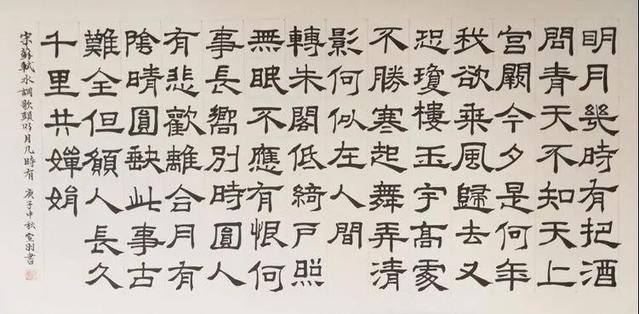 明月幾時有把酒
問青天不知天上
宮闕今夕是何年
我欲乘風歸去又
恐瓊樓玉宇高處
不勝寒起舞弄清
影何似在人間
轉朱閣低綺戶照
無眠不應有恨何
事長嚮別時圓人
有悲歡離合月有
陰晴圓缺此事古
難全但願人長久
千里共嬋娟
宋蘇軾水調歌頭明月几時有 庚子中秋 書